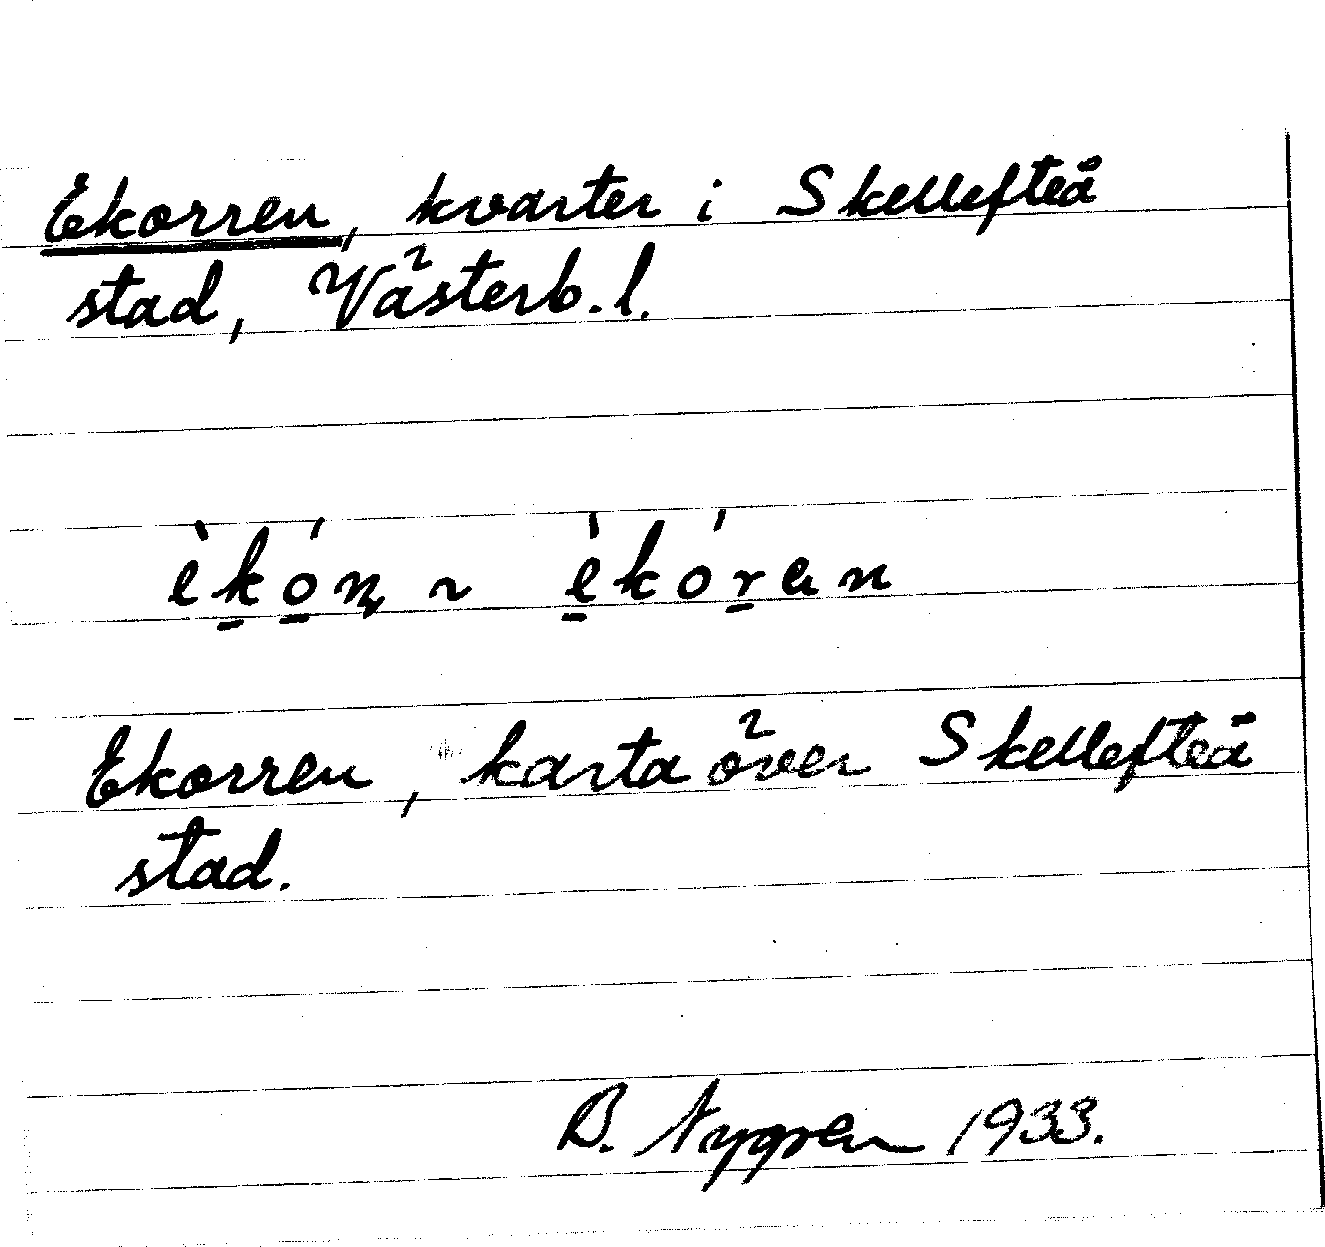 Ekorren, kvarter i Skellefteå
stad, Västerb. l.
èk̠ó̠ɳ ~ è̠kór̠an
Ekorren, karta över Skellefteå
stad.
B. Nygren 1933.